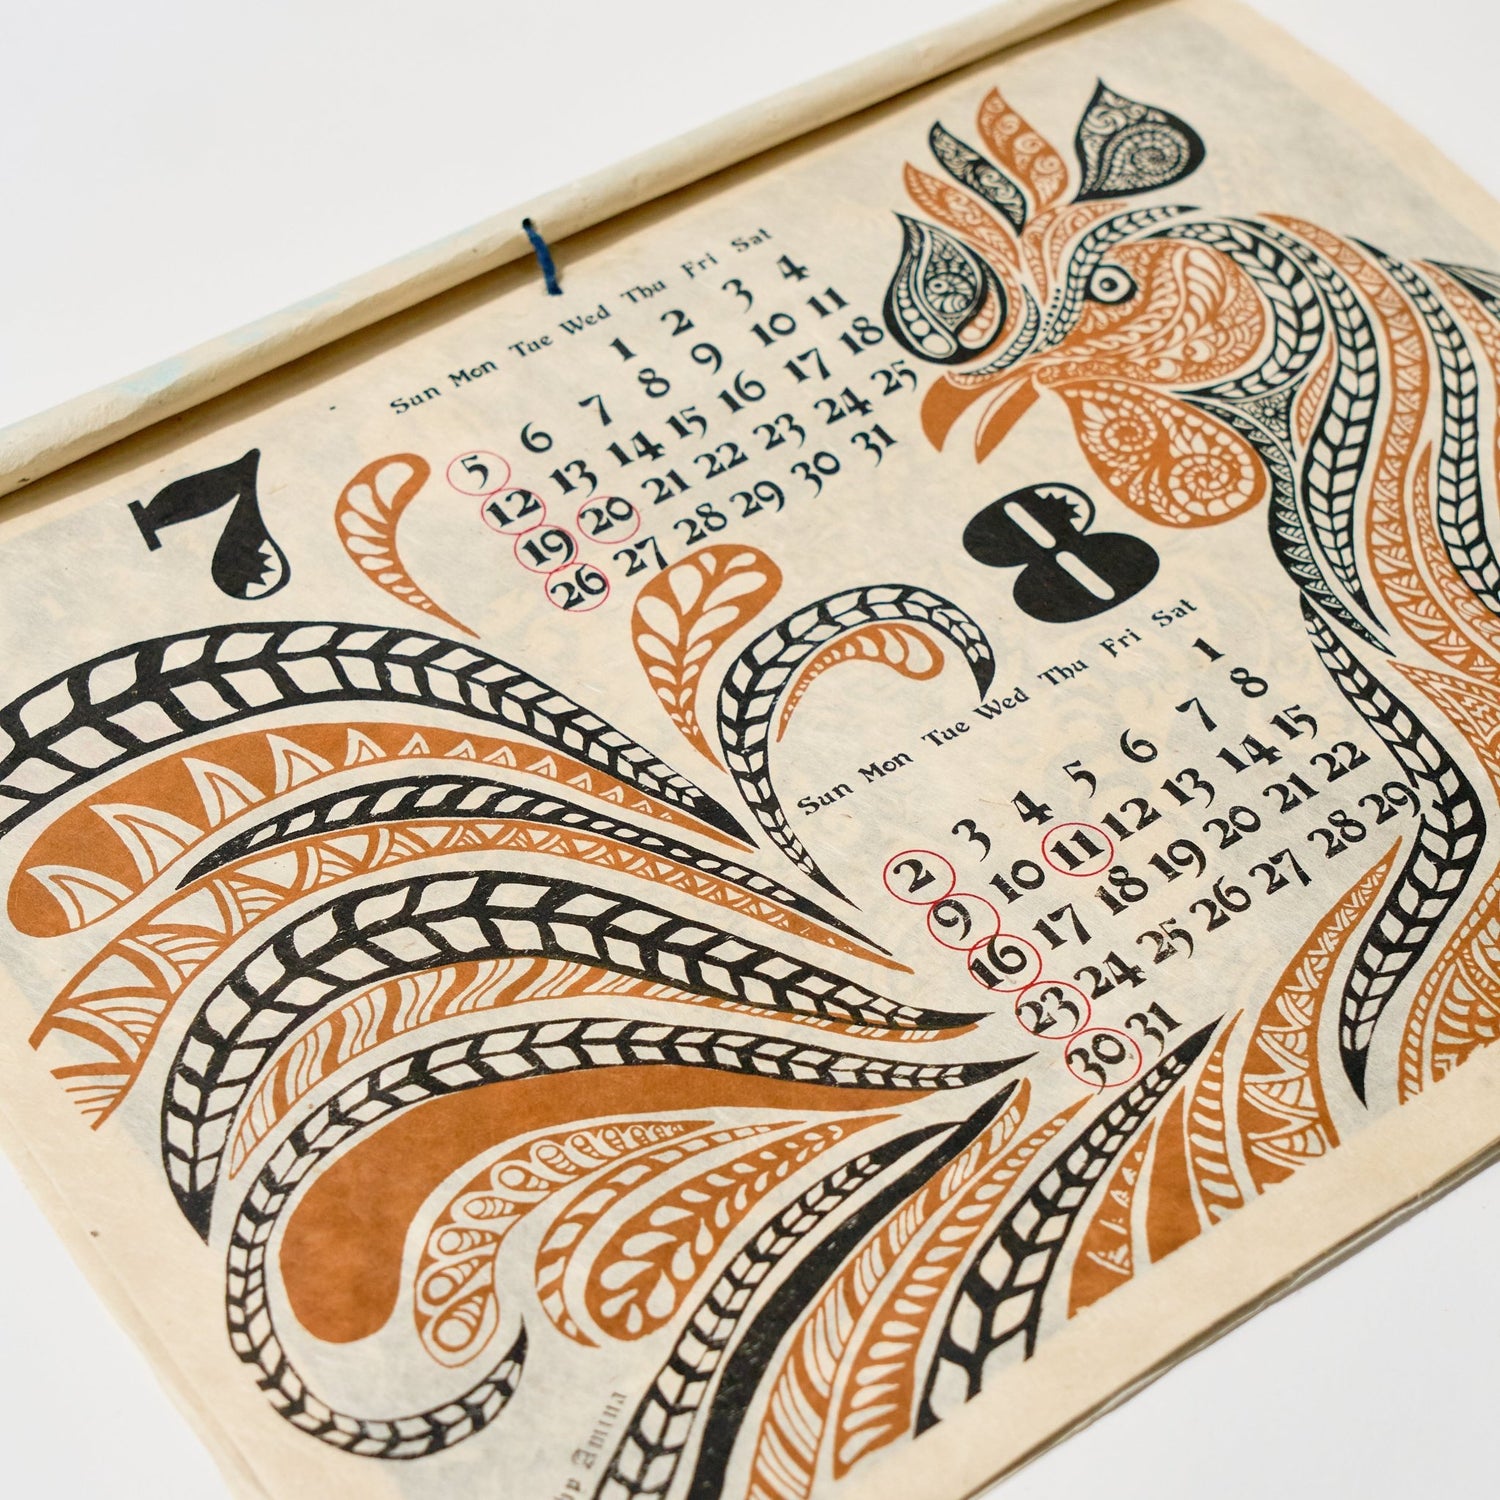 7
Sun Mon Tue Wed Thu Fri Sat
1 2 3 4
5 6 7 8 9 10 11
12 13 14 15 16 17 18
19 20 21 22 23 24 25
26 27 28 29 30 31
8
Sun Mon Tue Wed Thu Fri Sat
1
2 3 4 5 6 7 8
9 10 11 12 13 14 15
16 17 18 19 20 21 22
23 24 25 26 27 28 29
30 31
by Amina